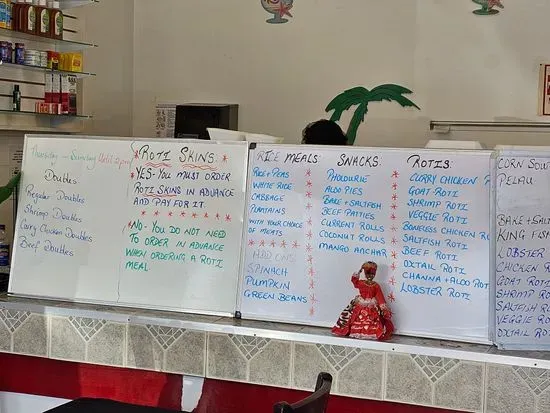 Thursday - Sunday Until 2pm
Doubles
Regular Doubles
Shrimp Doubles
Curry Chicken Doubles
Beef Doubles
ROTI SKINS
YES- YOU MUST ORDER
ROTI SKINS IN ADVANCE
AND PAY FOR IT.
NO- YOU DO NOT NEED
TO ORDER IN ADVANCE
WHEN ORDERING A ROTI
MEAL
RICE MEALS
RICE+PEAS
WHITE RICE
CABBAGE
PLANTAINS
WITH YOUR CHOICE
OF MEATS
ADD ONS
SPINACH
PUMPKIN
GREEN BEANS
SNACKS
PHOLOURIE
ALOO PIES
BAKE+SALTFISH
BEEF PATTIES
CURRENT ROLLS
COCONUT ROLLS
MANGO ANCHAR
ROTIS
CURRY CHICKEN
GOAT ROTI
SHRIMP ROTI
VEGGIE ROTI
BONELESS CHICKEN
SALTFISH ROTI
BEEF ROTI
OXTAIL ROTI
CHANNA+ALOO ROTI
LOBSTER ROTI
CORN SOUP
PELAU
BAKE+SALT
KING FISH
LOBSTER
CHICKEN
GOAT ROTI
SHRIMP ROTI
SALTFISH
VEGGIE RO
OXTAIL ROTI